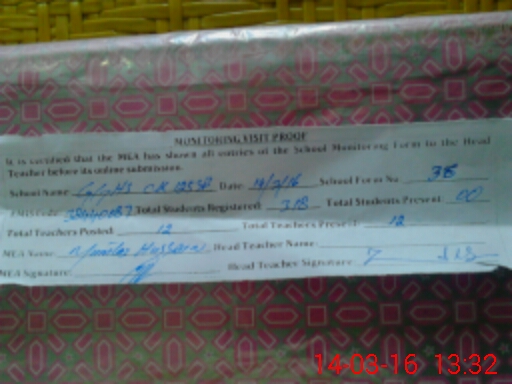 MONITORING VISIT PROOF
It is certified that the MEA has shown all entries of the School Monitoring Form to the Head
Teacher before its online submission.
School Name Date 14/3/16 School Form No 38
EMIS Code Total Students Registered 318 Total Students Present 00
Total Teachers Posted 12 Total Teachers Present 12
MEA Name Hussain Head Teacher Name
MEA Signature: Head Teacher Signature
14-03-16 13:32